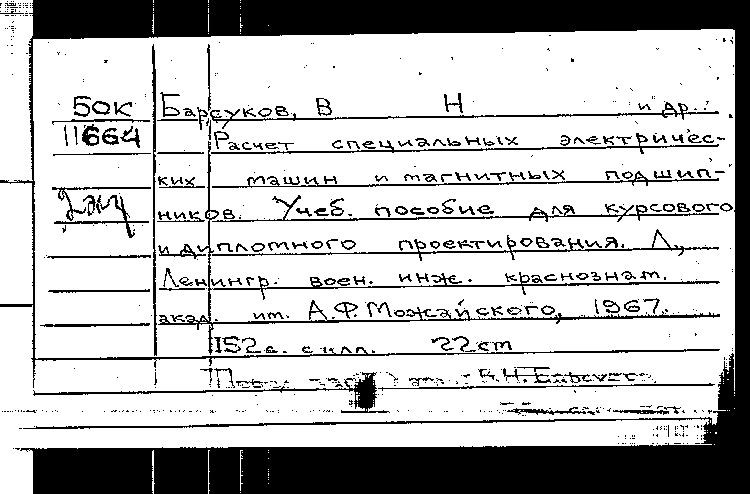 50К
11664
2 экз
Барсуков, В Н и др.
Расчет специальных электричес-
ких машин и магнитных подшип-
ников. Учеб. пособие для курсового
и дипломного проектирования. Л.,
Ленингр. воен. инж. краснознам.
акад. им. А.Ф. Можайского, 1967.
152 с. с илл. 22 см
В.Н. Барсуков